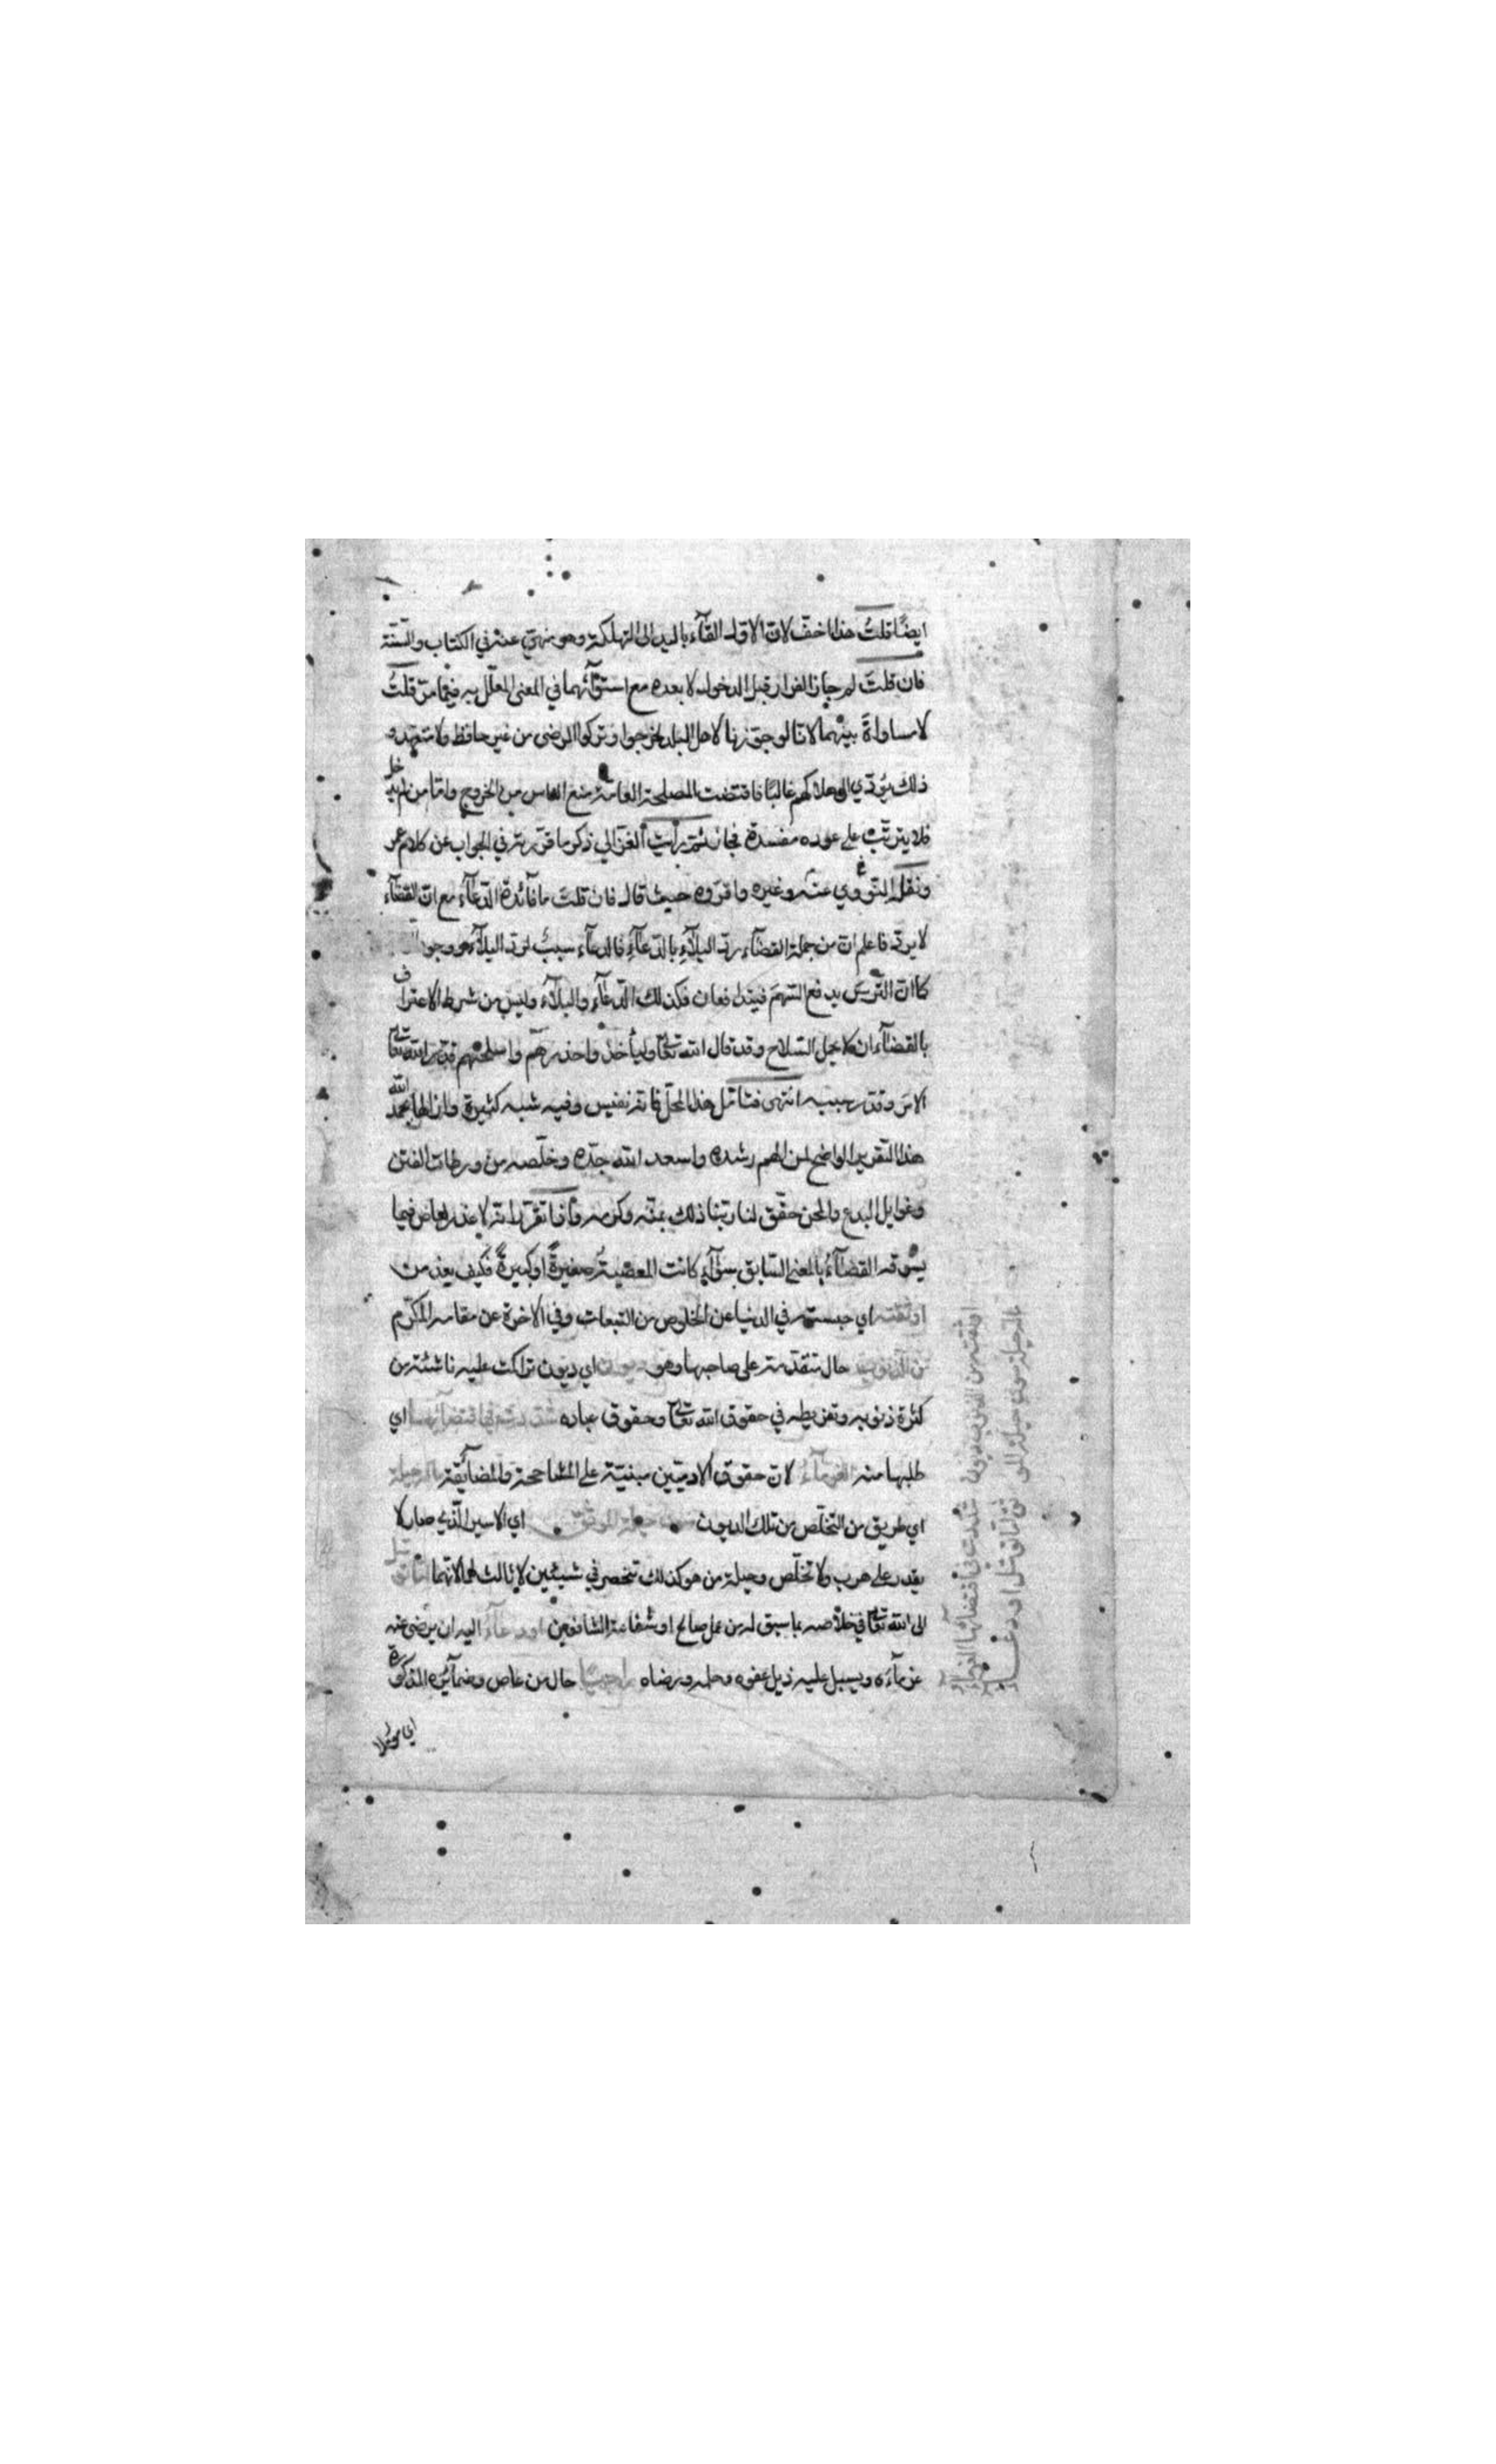 ايضًا قلتُ هذا اخفّ لانّ الاوّل القآء باليد الى التهلكة وهو منهيّ عنه في الكتاب والسّنّة
فان قلتَ لم جاز الفرار قبل الدخول لا بعده مع استوآئهما في المعنى المعلّل به فيما مرّ قلتُ
لا مساواةَ بينهما لانا لو جوّزنا لاهل البلد لخرجوا وتركوا المرضى من غير حافظ ولا متعهد و
ذلك يؤدّي الى هلاكهم غالبًا فاقتضت المصلحة العامّة منع الناس من الخروج وامّا من لم يدخل
فلا يترتّب على عوده مفسدة فجاز ثمّ رأيت الغزالي ذكر ما قرّرته في الجواب عن كلام عمر
ونقل النّووي عنه وغيره واقرّوه حيث قال فان قلتَ ما فآئدة الدّعآء مع انّ القضآء
لا يردّ فاعلم ان من جملة القضآء ردّ البلآءِ بالدّعآءِ فالدعآء سببٌ لردّ البلآء ووجود
كما انّ التّرسَ يدفع السّهمَ فيتدافعان فكذلك الدّعآء والبلآء وليس من شرط الاعتراف
بالقضآء ان لا يحمل السّلاح وقد قال الله تعالى وليأخذوا حذرهم واسلحتهم فقدّر الله تعالى
الامر وقدّر سببه انتهى فتأمّل هذا المحلّ فانه نفيس وفيه شبه كثيرة وازالها بحمد الله
هذا التقرير الواضح لمن الهم رشده واسعد الله جدّه وخلّصه من ورطات الفتن
وغوايل البدع والمحن حقّق لنا ربّنا ذلك بمنّه وكرمه واذا تقرّر انه لا عذر لعاص فيما
يسوقه القضآءُ بالمعنى السّابق سوآء كانت المعصيةُ صغيرةً او كبيرةً فكيف يعذر من
اوثقته اي حبسته في الدنيا عن الخلوص من التبعات وفي الاخرة عن مقامه المكرّم
من الذنوب حال تقدّمت على صاحبها وهو ديون اي ديون تراكمت عليه ناشئة من
كثرة ذنوبه وتفريطه في حقوق الله تعالى وحقوق عباده شدّدت في اقتضائها اي
طلبها منه الغرمآءُ لانّ حقوق الآدميّين مبنيّة على المشاححة والمضآيقة ما له حيلة
اي طريق من التخلّص من تلك الديون سوى حيلة الموثق اي الاسير الّذي صار لا
يقدر على هرب ولا تخلّص وحيلة من هو كذلك تنحصر في شيئين لا ثالث لهما لانّهما امّا توسّل
الى الله تعالى في خلاصه بما سبق له من عمل صالح او شفاعة الشافعين او دعآء اليه ان يرضى عنه
غرمآءَه ويسبل عليه ذيل عفوه وحلمه ورضاه راجيًا حال من عاص وضمآئره المذكورة
اي مؤمّلا
اوثقته من الذنوب ديون شدّدت في اقتضآئها الغرمآء
ما له حيلة سوى حيلة الموثق امّا توسّل او دعاء